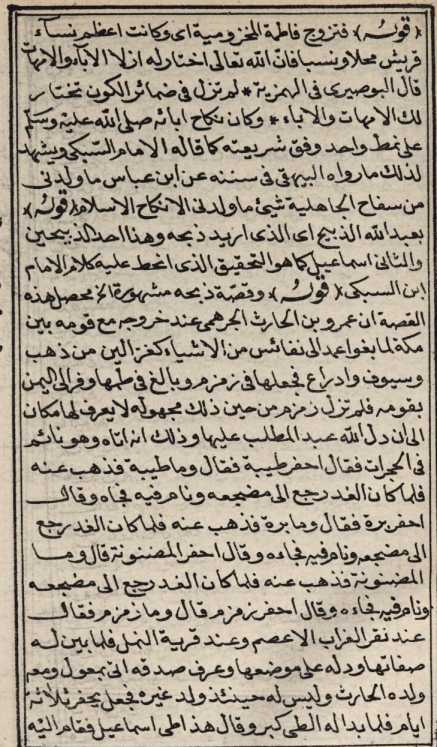 ﴿قوله﴾ فتزوج فاطمة المخزومية اى وكانت اعظم نسآء
قريش محلا ونسبا فان الله تعالى اختار له ازلا الآباء والامهات
قال البوصيرى فى الهمزية * لم تزل فى ضمائر الكون تختار
لك الامهات والاباء * وكان نكاح ابائه صلى الله عليه وسلم
على نمط واحد وفق شريعته كما قاله الامام السبكى ويشهد
لذلك ما رواه البيهقى فى سننه عن ابن عباس ما ولدنى
من سفاح الجاهلية شيئ ما ولدنى الا نكاح الاسلام ﴿قوله﴾
بعبد الله الذبيح اى الذى اريد ذبحه وهذا احد الذبيحين
والثانى اسماعيل كما هو التحقيق الذى انحط عليه كلام الامام
ابن السبكى ﴿قوله﴾ وقصة ذبحه مشهورة الخ محصل هذه
القصة ان عمرو بن الحارث الجرهمى عند خروجه مع قومه بين
مكة لما بغوا عمد الى نفائس من الاشياء كغزالين من ذهب
وسيوف وادراع فجعلها فى زمزم وبالغ فى طمها وفر الى اليمن
بقومه فلم تزل زمزم من حين ذلك مجهوله لا يعرف لها مكان
الى ان دل الله عبد المطلب عليها وذلك انه اتاه وهو نائم
فى الحجرات فقال احفر طيبة فقال وما طيبة فذهب عنه
فلما كان الغد رجع الى مضجعه ونام فيه فجاءه وقال
احفر برة فقال وما برة فذهب عنه فلما كان الغد رجع
الى مضجعه ونام فيه فجاءه وقال احفر المضنونة قال وما
المضنونة فذهب عنه فلما كان الغد رجع الى مضجعه
ونام فيه فجاءه وقال احفر زمزم قال وما زمزم فقال
عند نقر الغراب الاعصم وعند قرية النمل فلما بين له
صفاتها ودله على موضعها وعرف صدقه اتى بمعول ومعه
ولده الحارث وليس له حينئذ ولد غيره فجعل يحفر ثلاثة
ايام فلما بدا له الطى كبر وقال هذا طى اسماعيل فقام اليه